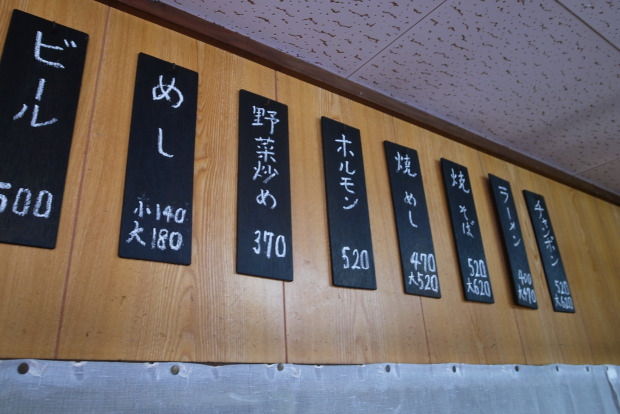 ビール
500
めし
小140
大180
野菜炒め
370
ホルモン
520
焼めし
470
大520
焼そば
520
大620
ラーメン
400
大470
チャンポン
520
大620